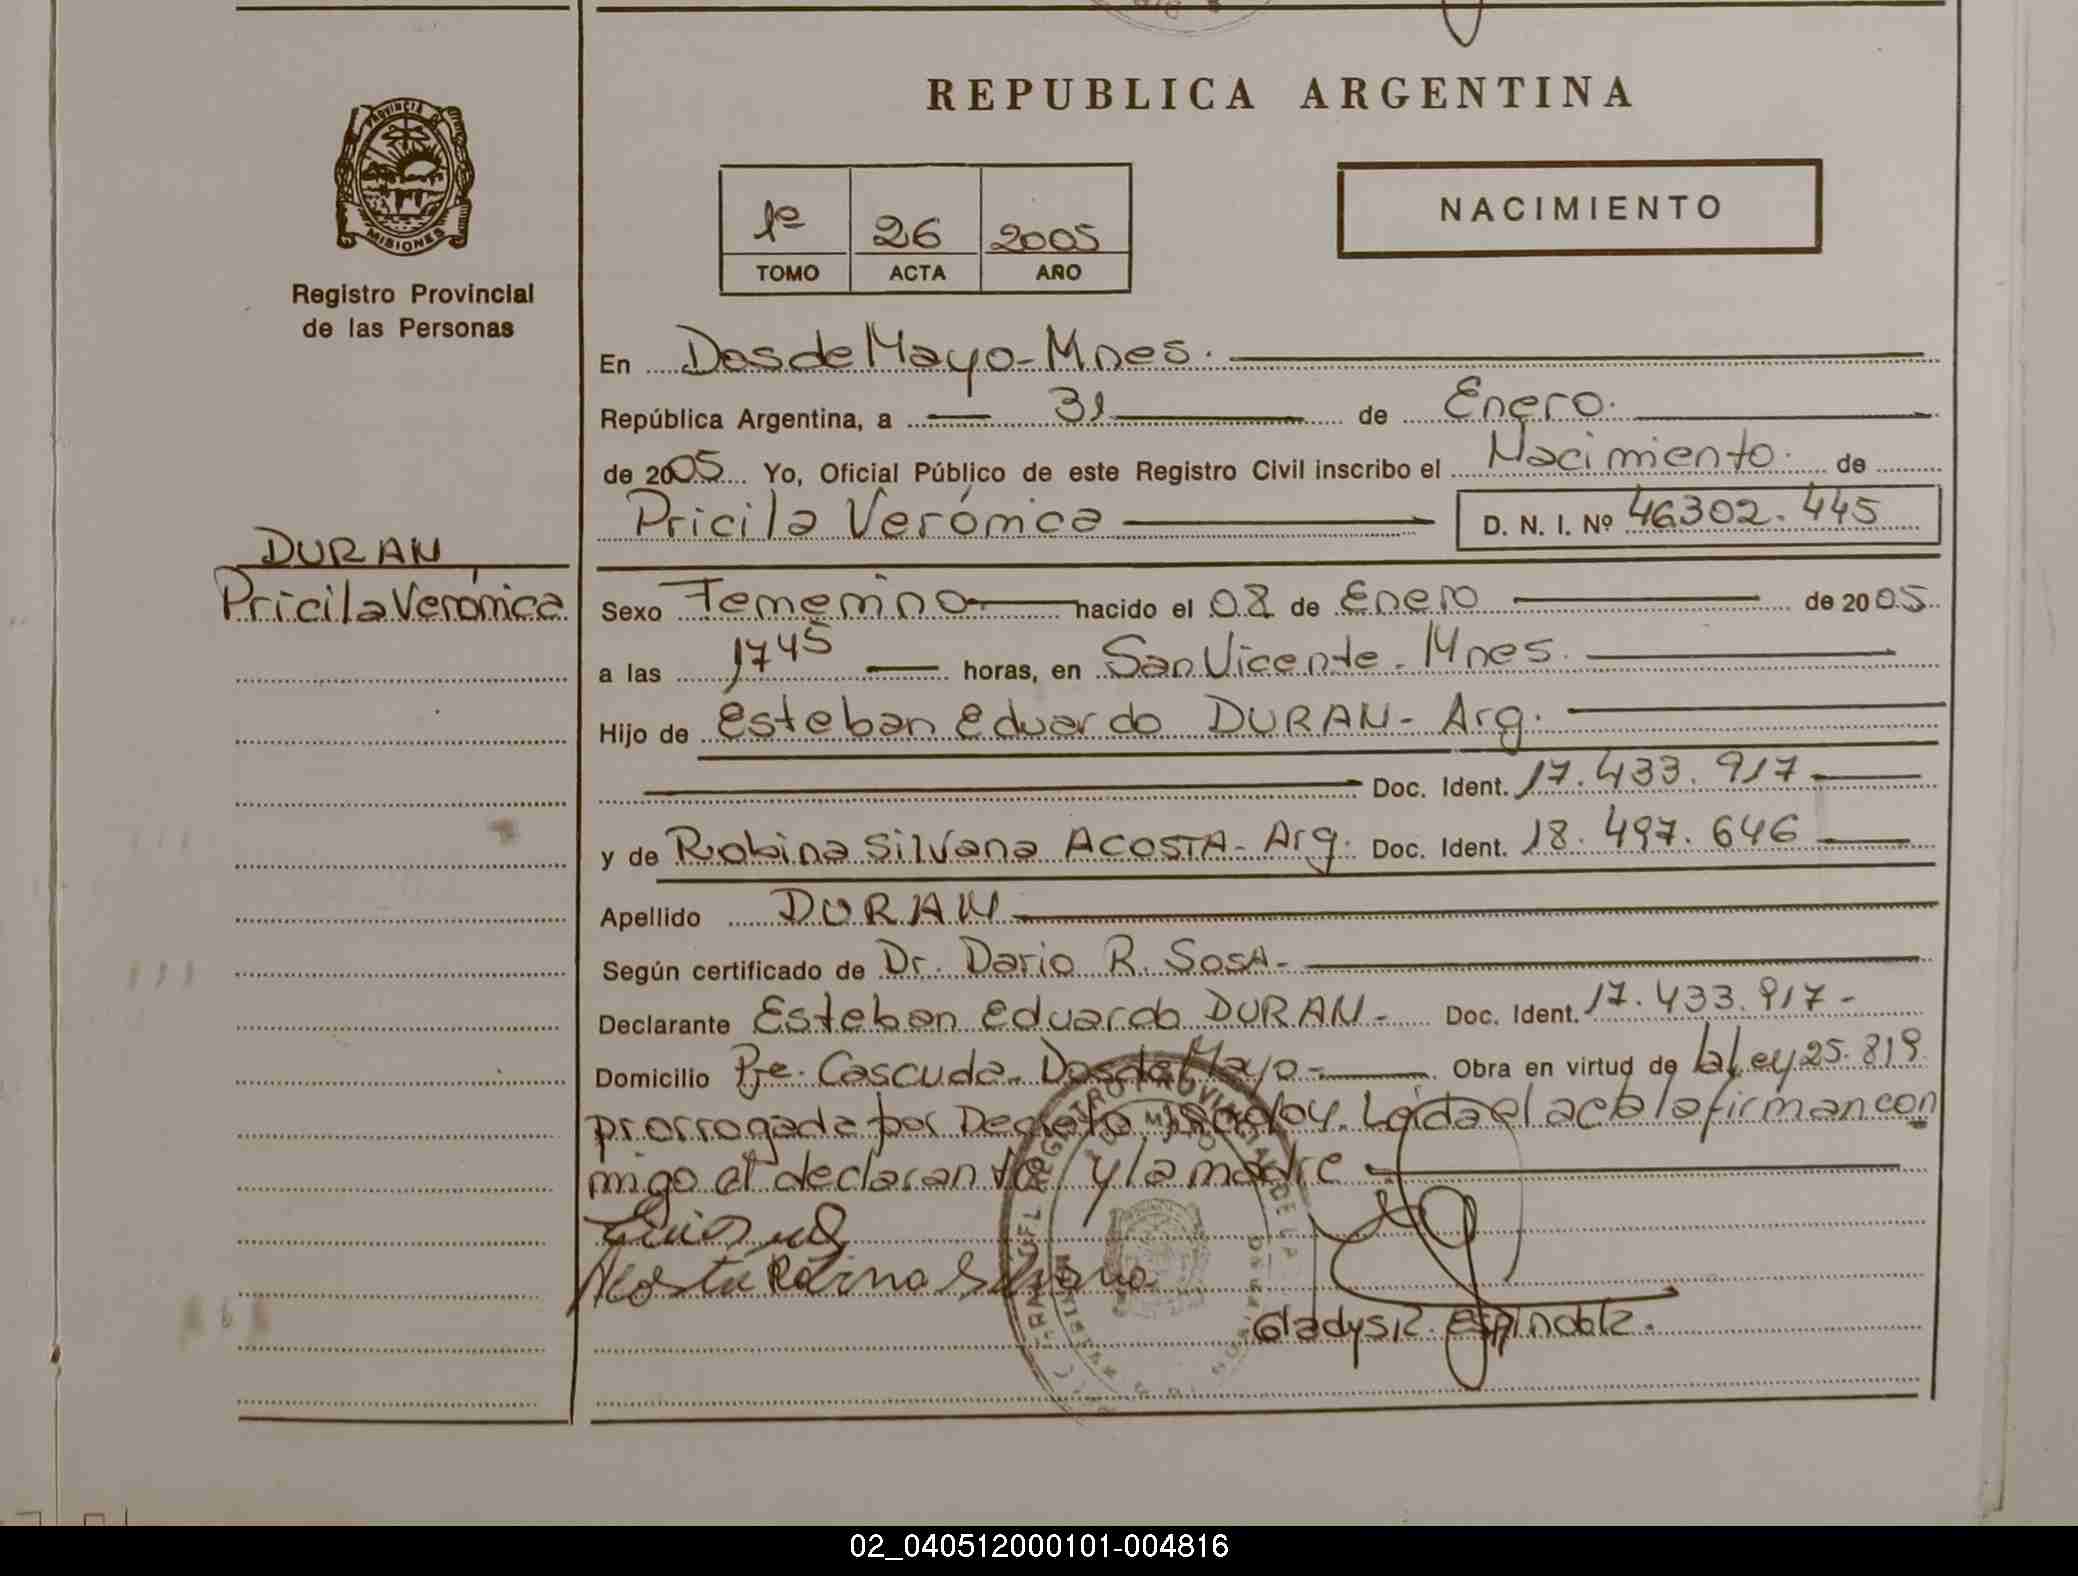 REPUBLICA ARGENTINA
PROVINCIA DE
MISIONES
Registro Provincial
de las Personas
1º 26 2005
TOMO ACTA AÑO
NACIMIENTO
En Dos de Mayo - Mnes.
República Argentina, a 31 de Enero.
de 2005 Yo, Oficial Público de este Registro Civil inscribo el Nacimiento. de
Pricila Verónica D. N. I. Nº 46302.445
DURAN
Pricila Verónica
Sexo Femenino nacido el 08 de Enero de 2005
a las 1745 horas, en San Vicente. Mnes.
Hijo de Esteban Eduardo DURAN - Arg.
Doc. Ident. 17.433.917
y de Robina Silvana ACOSTA - Arg. Doc. Ident. 18.497.646
Apellido DURAN
Según certificado de Dr. Dario R. SosA -
Declarante Esteban Eduardo DURAN - Doc. Ident. 17.433.917 -
Domicilio Pje. Cascuda. Dos de Mayo - Obra en virtud de la Ley 25.819
prorrogada por Decreto Leída el acta la firman con
migo el declarante y la madre
Acosta Robina Silvana
Gladys R. Espindola.
02_040512000101-004816